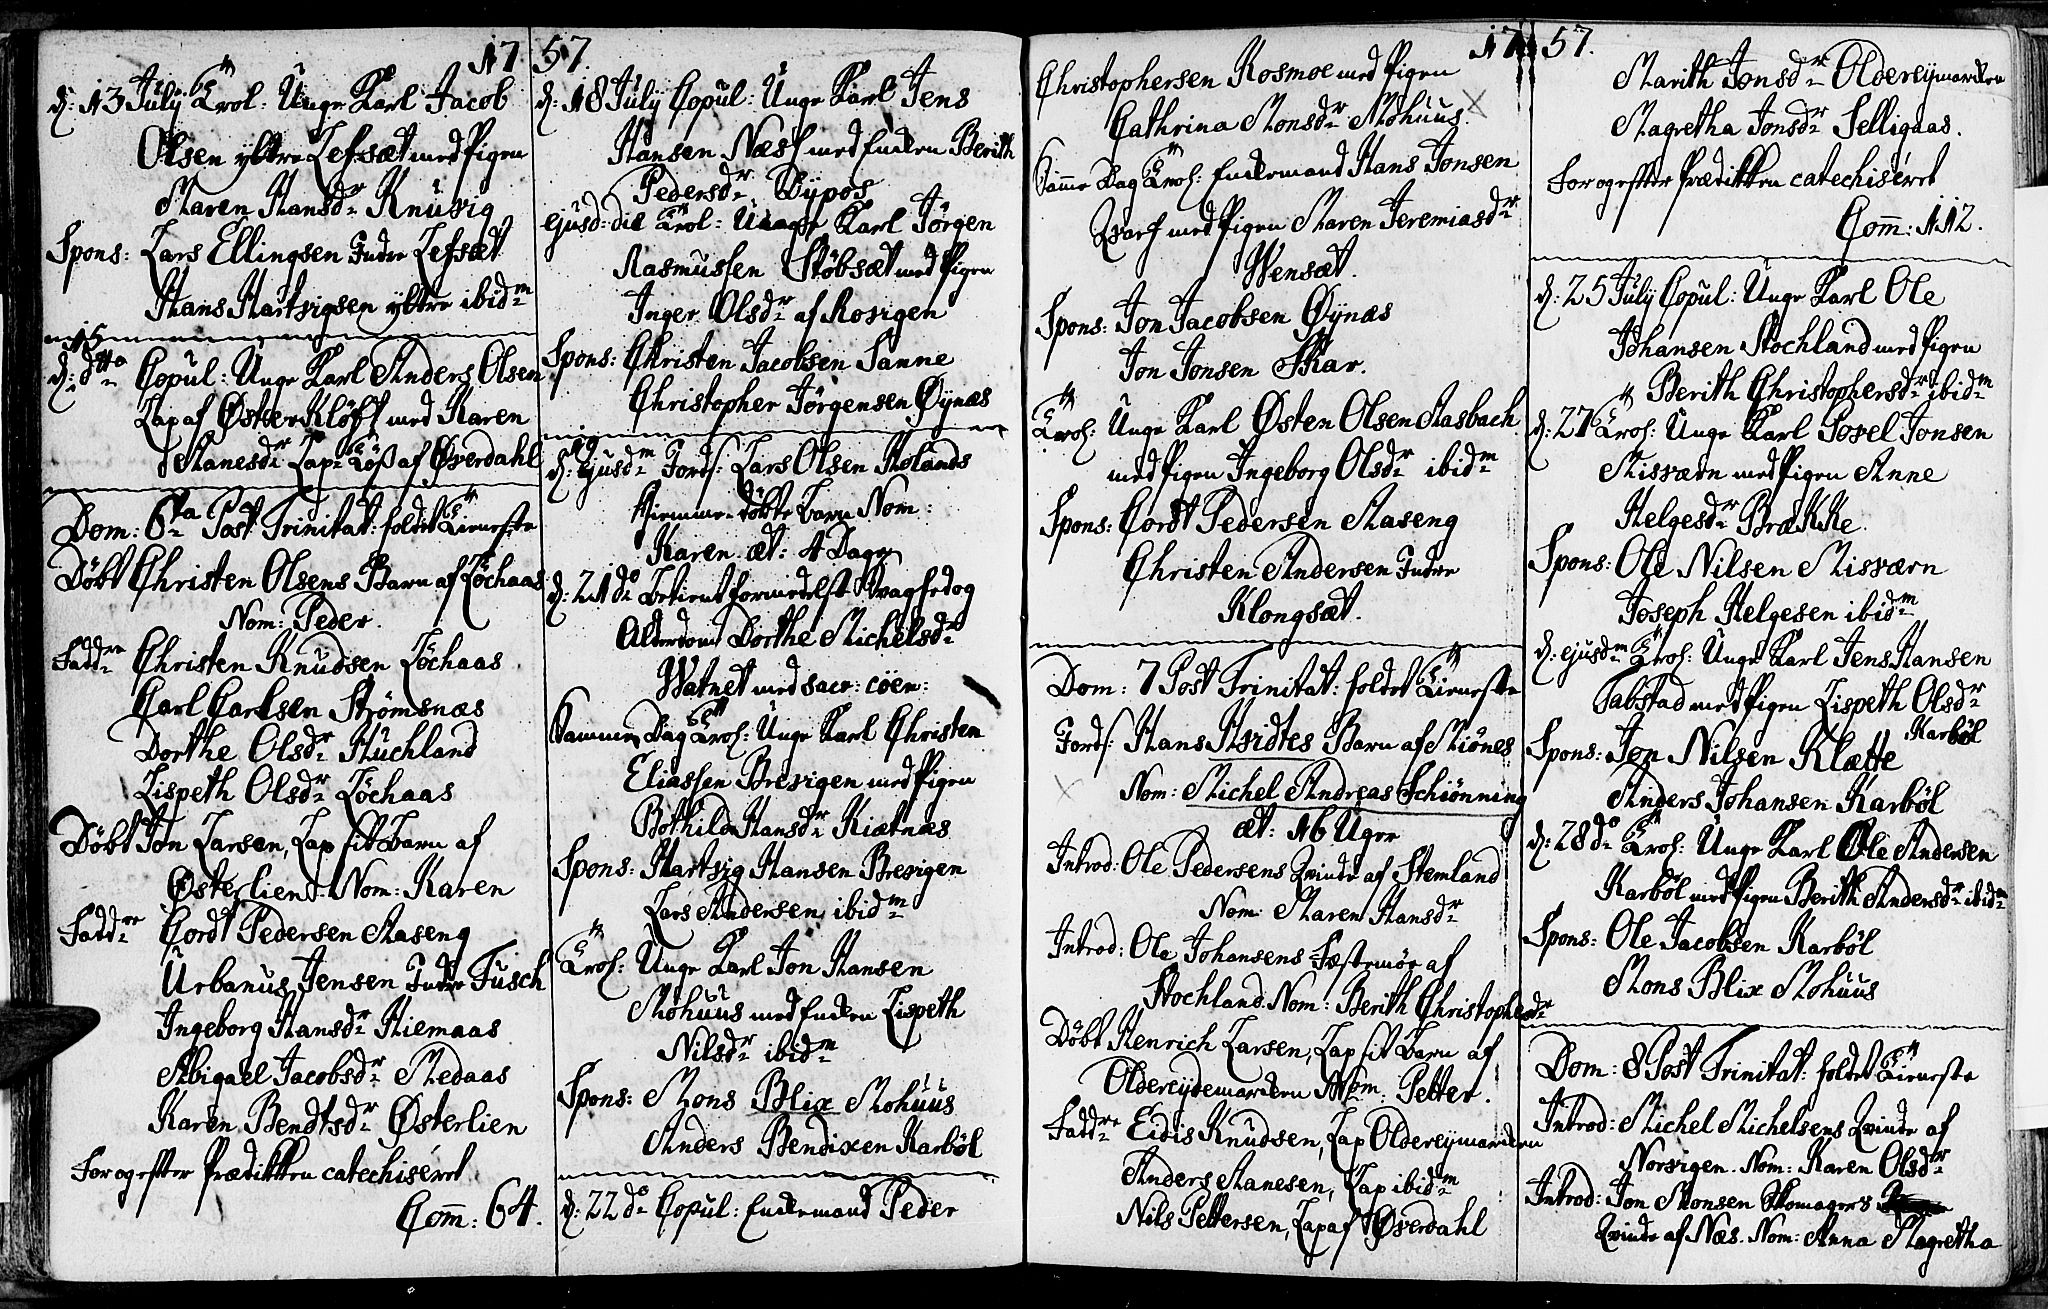 17 57.
d: 13 July Trol: Unge Karl Jacob
Olsen yttre Lefsæt med Pigen
Maren Hansdr Knüvig
Spons: Lars Ellingsen Indre Lefsæt
Hans Hartvigsen yttre ibidm
15
d: dtto Copul: Unge Karl Anders Olsen
Lap af Østerkløft med Karen
Manesdr Lap Löß af Øverdahl
Dom: 6ta Post Trinitat: holdet Tieneste
Döbt Christen Olsens Barn af Löchaas
Nom: Peder.
Faddre Christen Knudsen Löchaas
Carl Carlsen Strömsnæs
Dorthe Olsdr Hüchland
Lispeth Olsdr Löchaas
Döbt Jon Larsen, Lap sit Barn af
Østerlien. Nom: Karen
Faddre Cordt Pedersen Aaseng
Urbanus Jensen Indre Fusch
Ingeborg Hansdr Hiemaas
Abigael Jacobsdr Medaas
Karen Bendtsdr Østerlien
For og efter Prædikken catechiseret
Com̅: 64.
d: 18 July Copul: Unge Karl Jens
Hansen Næss med Enken Berith
Pedersdr Dypos
ejusd: die Trol: Unge Karl Jörgen
Rasmussen Stöbsæt med Pigen
Inger Olsdr af Rosvigen
Spons: Christen Jacobsen Sanne
Christopher Jörgensen Øynæs
19
d: Ejusdm Jords: Lars Olsen Molands
Hjemmedöbte Barn Nom:
Karen æt: 4 Dage
d: 21 do Betient formedelst Svaghed og
Alderdom Dorthe Michelsdr
Watnet med sacr: cöen:
Samme Dag Trol: Unge Karl Christen
Eliassen Brevigen med Pigen
Bothilde Hansdr Kiætnæs
Spons: Hartvig Hansen Brevigen
Lars Andersen ibidm
Trol: Unge Karl Jon Hansen
Mohuus med Enken Lispeth
Nilsdr ibidm
Spons: Mons Blix Mohuus
Anders Bendixen Karböl
d: 22 do Copul: Enkemand Peder
17 57.
Christophersen Rosmoe med Pigen
Cathrina Monsdr Mohuus.
Samme Dag Trol: Enkemand Hans Jonsen
Qvarf med Pigen Maren Jeremiasdr
Wensæt.
Spons: Jon Jacobsen Øynæs
Jon Jonsen Skar.
Trol: Unge Karl Østen Olsen Aasbach
med Pigen Ingeborg Olsdr ibidm
Spons: Cordt Pedersen Aaseng
Christen Andersen Indre
Klongsæt.
Dom: 7 Post Trinitat: holdet Tieneste
Jords: Hans Hvidtes Barn af Miönes
Nom: Michel Andreas Schiönning
æt: 16 Uger
Introd: Ole Pedersens Qvinde af Stemland
Nom: Maren Hansdr
Introd: Ole Johansens Festemöe af
Stochland. Nom: Berith Christophersdr
Döbt Henrich Larsen, Lap sit Barn af
Oldereydemarchen Nom: Petter.
Faddre Eidis Knudsen, Lap Oldereymarchen
Anders Manesen, Lap ibidm
Nils Pettersen, Lap af Øverdahl
Marith Jonsdr Oldereymarchen
Magretha Jonsdr Selligaas.
For og efter Prædikken catechiseret
Com̅: 112.
d: 25 July Copul: Unge Karl Ole
Johansen Stochland med Pigen
Berith Christophersdr ibidm
d: 27 Trol: Unge Karl Povel Jonsen
Misværn med Pigen Anne
Helgesdr Brække.
Spons: Ole Nilsen Misværn
Joseph Helgesen ibidm
d: ejusdm Trol: Unge Karl Jens Hansen
Tabstad med Pigen Lispeth Olsdr
Karböl
Spons: Jon Nilsen Klætte
Anders Johansen Karböl
d: 28 do Trol: Unge Karl Ole Andersen
Karböl med Pigen Berith Andersdr ibidm
Spons: Ole Jacobsen Karböl
Mons Blix Mohuus
Dom: 8 Post Trinitat: holdet Tieneste
Introd: Michel Michelsens Qvinde af
Norvigen. Nom: Karen Olsdr
Introd: Jon Monsen Skomagers
Qvinde af Næs. Nom: Anna Magretha